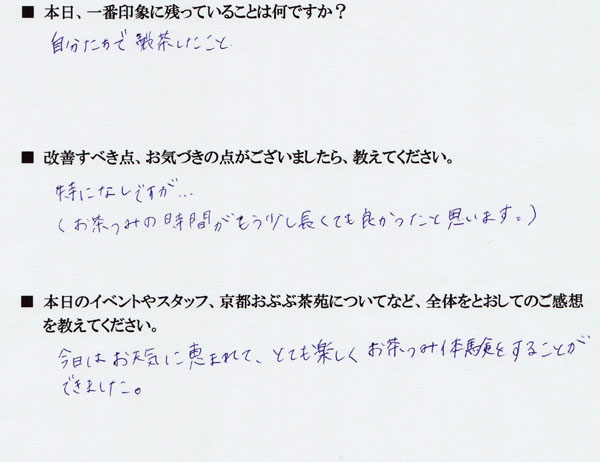 ■ 本日、一番印象に残っていることは何ですか?
自分たちで製茶したこと
■ 改善すべき点、お気づきの点がございましたら、教えてください。
特になしですが…
(お茶つみの時間がもう少し長くても良かったと思います。)
■ 本日のイベントやスタッフ、京都おぶぶ茶苑についてなど、全体をとおしてのご感想
を教えてください。
今日はお天気に恵まれて、とても楽しくお茶つみ体験をすることが
できました。